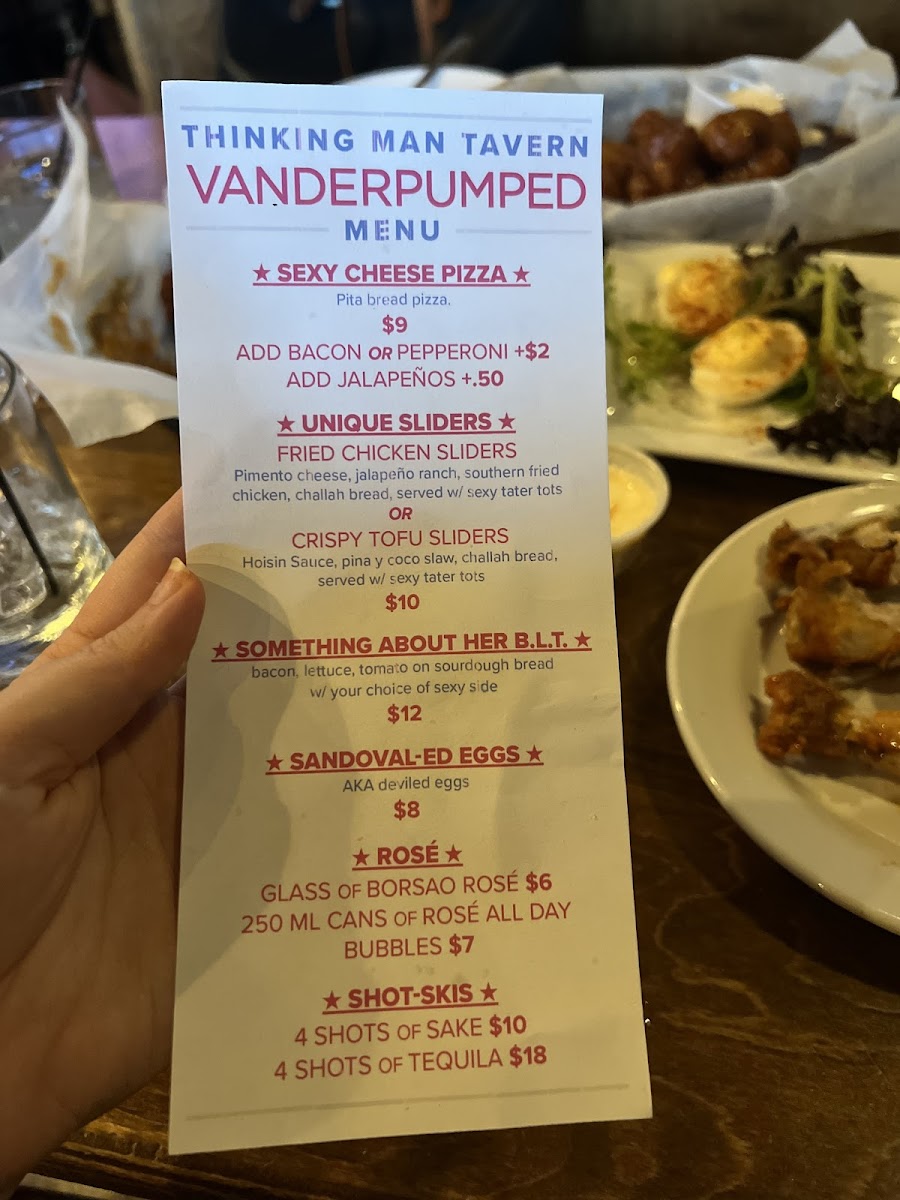 THINKING MAN TAVERN
VANDERPUMPED
MENU
★ SEXY CHEESE PIZZA ★
Pita bread pizza.
$9
ADD BACON OR PEPPERONI +$2
ADD JALAPEÑOS +.50
★ UNIQUE SLIDERS ★
FRIED CHICKEN SLIDERS
Pimento cheese, jalapeño ranch, southern fried
chicken, challah bread, served w/ sexy tater tots
OR
CRISPY TOFU SLIDERS
Hoisin Sauce, pina y coco slaw, challah bread,
served w/ sexy tater tots
$10
★ SOMETHING ABOUT HER B.L.T. ★
bacon, lettuce, tomato on sourdough bread
w/ your choice of sexy side
$12
★ SANDOVAL-ED EGGS ★
AKA deviled eggs
$8
★ ROSÉ ★
GLASS OF BORSAO ROSÉ $6
250 ML CANS OF ROSÉ ALL DAY
BUBBLES $7
★ SHOT-SKIS ★
4 SHOTS OF SAKE $10
4 SHOTS OF TEQUILA $18